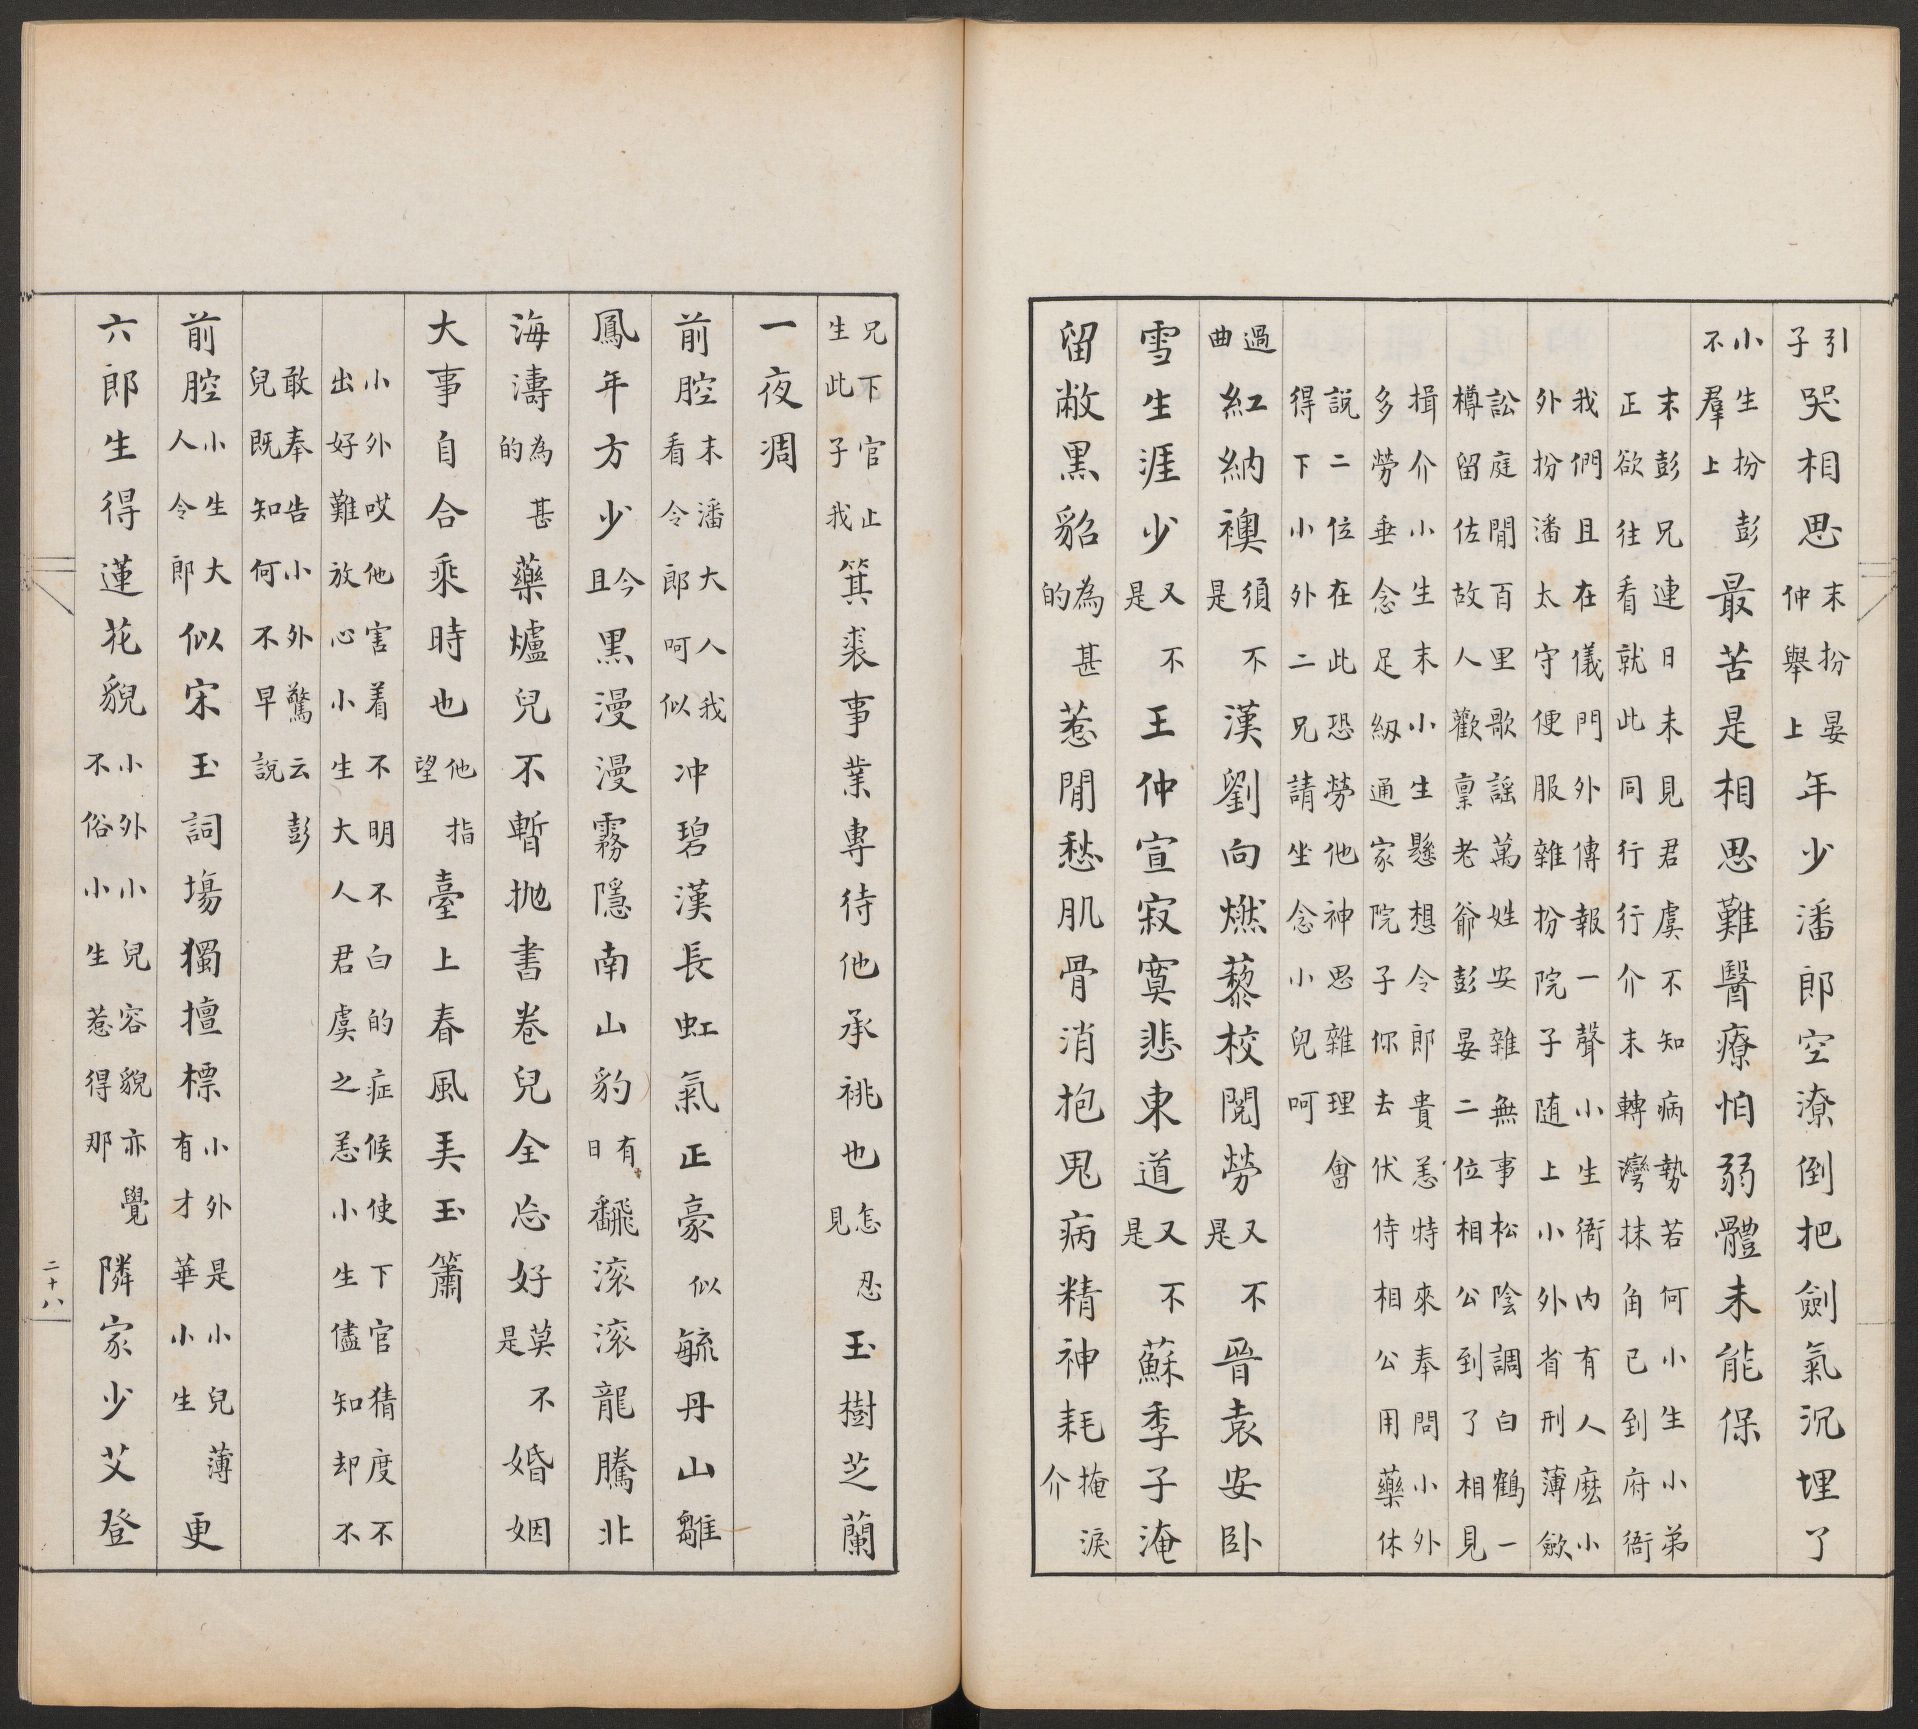 引子哭相思末扮晏仲舉上年少潘郎空潦倒把劍氣沉埋了
小生扮彭不羣上最苦是相思難醫療怕弱體未能保
末彭兄連日未見君虞不知病勢若何小生小弟
正欲往看就此同行行介末轉灣抹角已到府衙
我們且在儀門外傳報一聲小生衙内有人麽小
外扮潘太守便服雜扮院子随上小外省刑薄斂
訟庭閒百里歌謡萬姓安雜無事松陰調白鶴一
樽留佐故人歡稟老爺彭晏二位相公到了相見
揖介小生末小生懸想令郎貴恙特來奉問小外
多勞垂念足紉通家院子你去伏侍相公用藥休
說二位在此恐勞他神思雜理會
得下小外二兄請坐念小兒呵
過曲紅納襖須不是漢劉向燃藜校閱勞又不是晉袁安卧
雪生涯少又不是王仲宣寂寞悲東道又不是蘇季子淹
留敝黑貂為甚的惹閒愁肌骨消抱鬼病精神耗掩淚介
兄下官止生此子我箕裘事業專待他承祧也怎忍見玉樹芝蘭
一夜凋
前腔末潘大人我看令郎呵似冲碧漢長虹氣正豪似毓丹山雛
鳳年方少今且黑漫漫霧隱南山豹有日飜滚滚龍騰北
海濤為甚的藥爐兒不暫抛書卷兒全忘好莫不是婚姻
大事自合乘時也他指望臺上春風弄玉簫
小外哎他害着不明不白的症候使下官猜度不
出好難放心小生大人君虞之恙小生儘知却不
敢奉告小外驚云彭
兒既知何不早說
前腔小生大人令郎似宋玉詞塲獨擅標小外是小兒薄有才華小生更
六郎生得蓮花貌小外小兒容貌亦覺不俗小生惹得那隣家少艾登
二十八